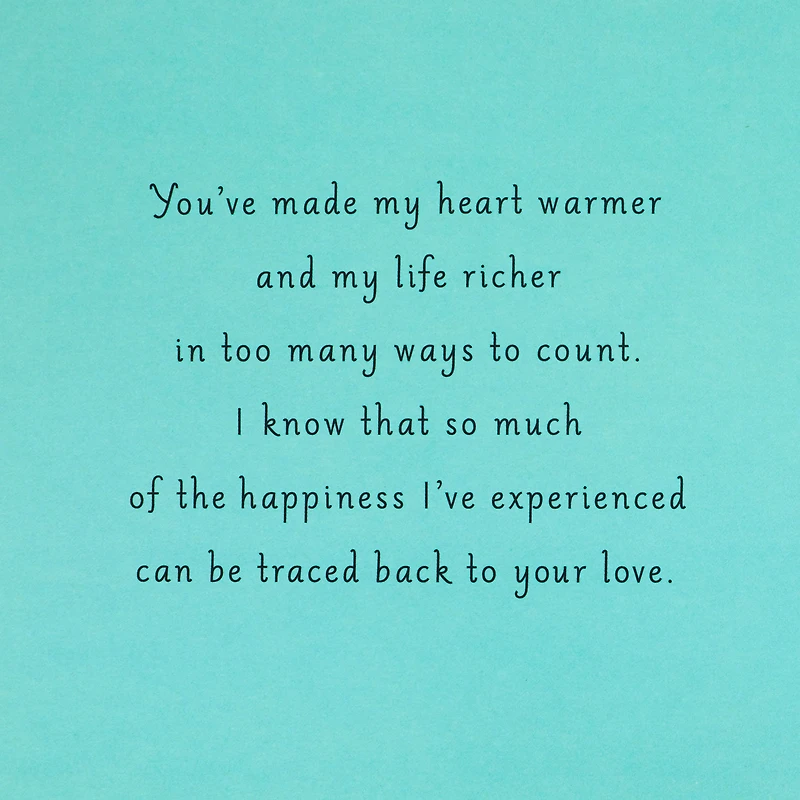 You've made my heart warmer
and my life richer
in too many ways to count.
I know that so much
of the happiness I've experienced
can be traced back to your love.